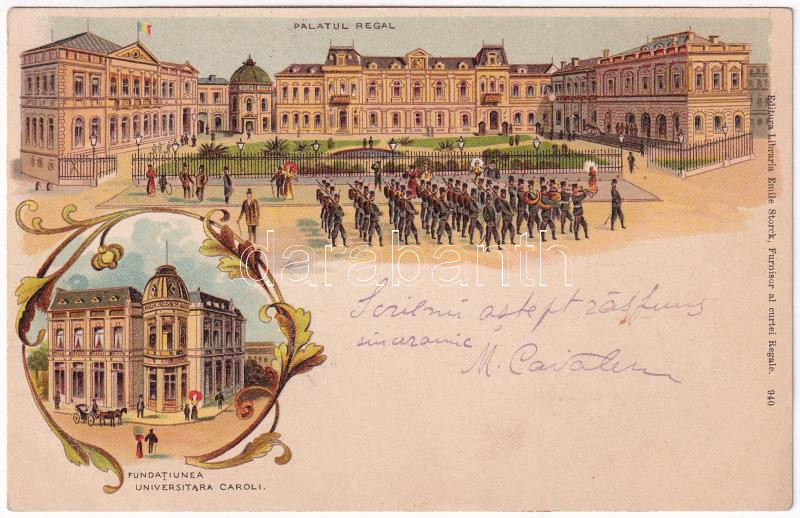 PALATUL REGAL
Editura Libraria Emile Storck, Furnisor al curtei Regale. 940
darabanth
Scrie mi aștept răspuns
M. Cavaleru
FUNDAȚIUNEA
UNIVERSITARA CAROLI.